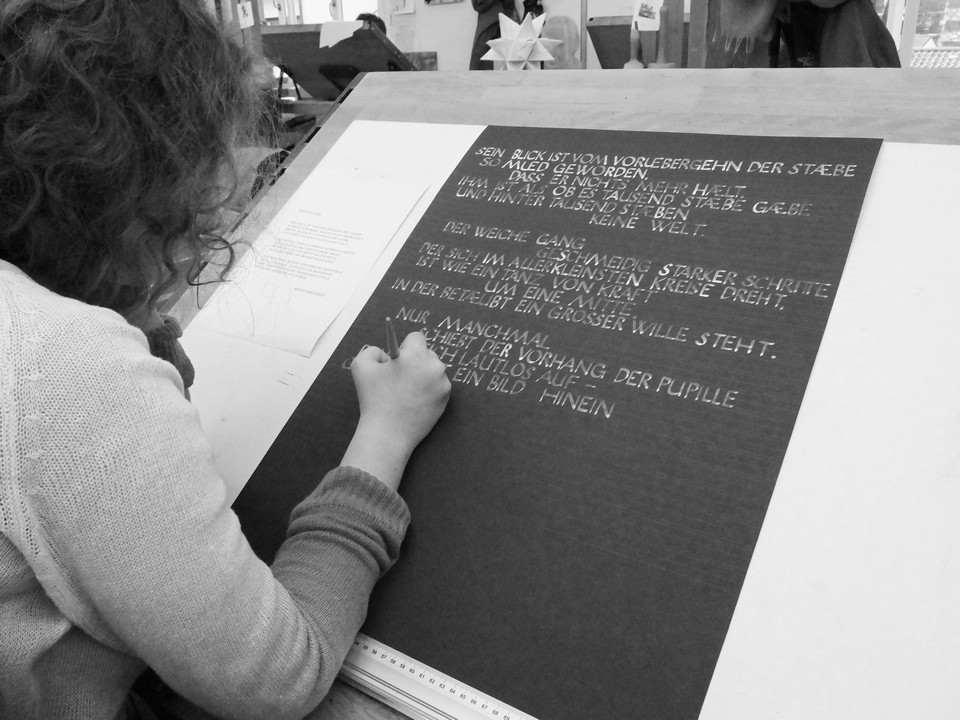 SEIN BLICK IST VOM VORUEBERGEHN DER STÆBE
SO MUED GEWORDEN,
DASS ER NICHTS MEHR HÆLT.
IHM IST ALS OB ES TAUSEND STÆBE GÆBE
UND HINTER TAUSEND STÆBEN
KEINE WELT.
DER WEICHE GANG
GESCHMEIDIG STARKER SCHRITTE
DER SICH IM ALLERKLEINSTEN KREISE DREHT,
IST WIE EIN TANZ VON KRAFT
UM EINE MITTE,
IN DER BETÆUBT EIN GROSSER WILLE STEHT.
NUR MANCHMAL
SCHIEBT DER VORHANG DER PUPILLE
ICH LAUTLOS AUF –
EIN BILD HINEIN